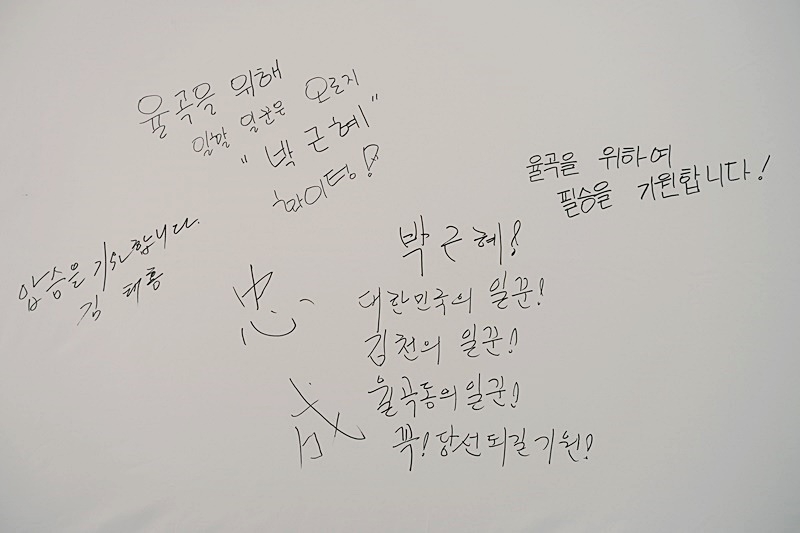 율곡을 위해
일할 일꾼은 오로지
"박근혜"
화이팅!
율곡을 위하여
필승을 기원합니다!
압승을 기원합니다.
김 태홍
忠
成
박근혜!
대한민국의 일꾼!
김천의 일꾼!
율곡동의 일꾼!
꼭! 당선되길 기원!